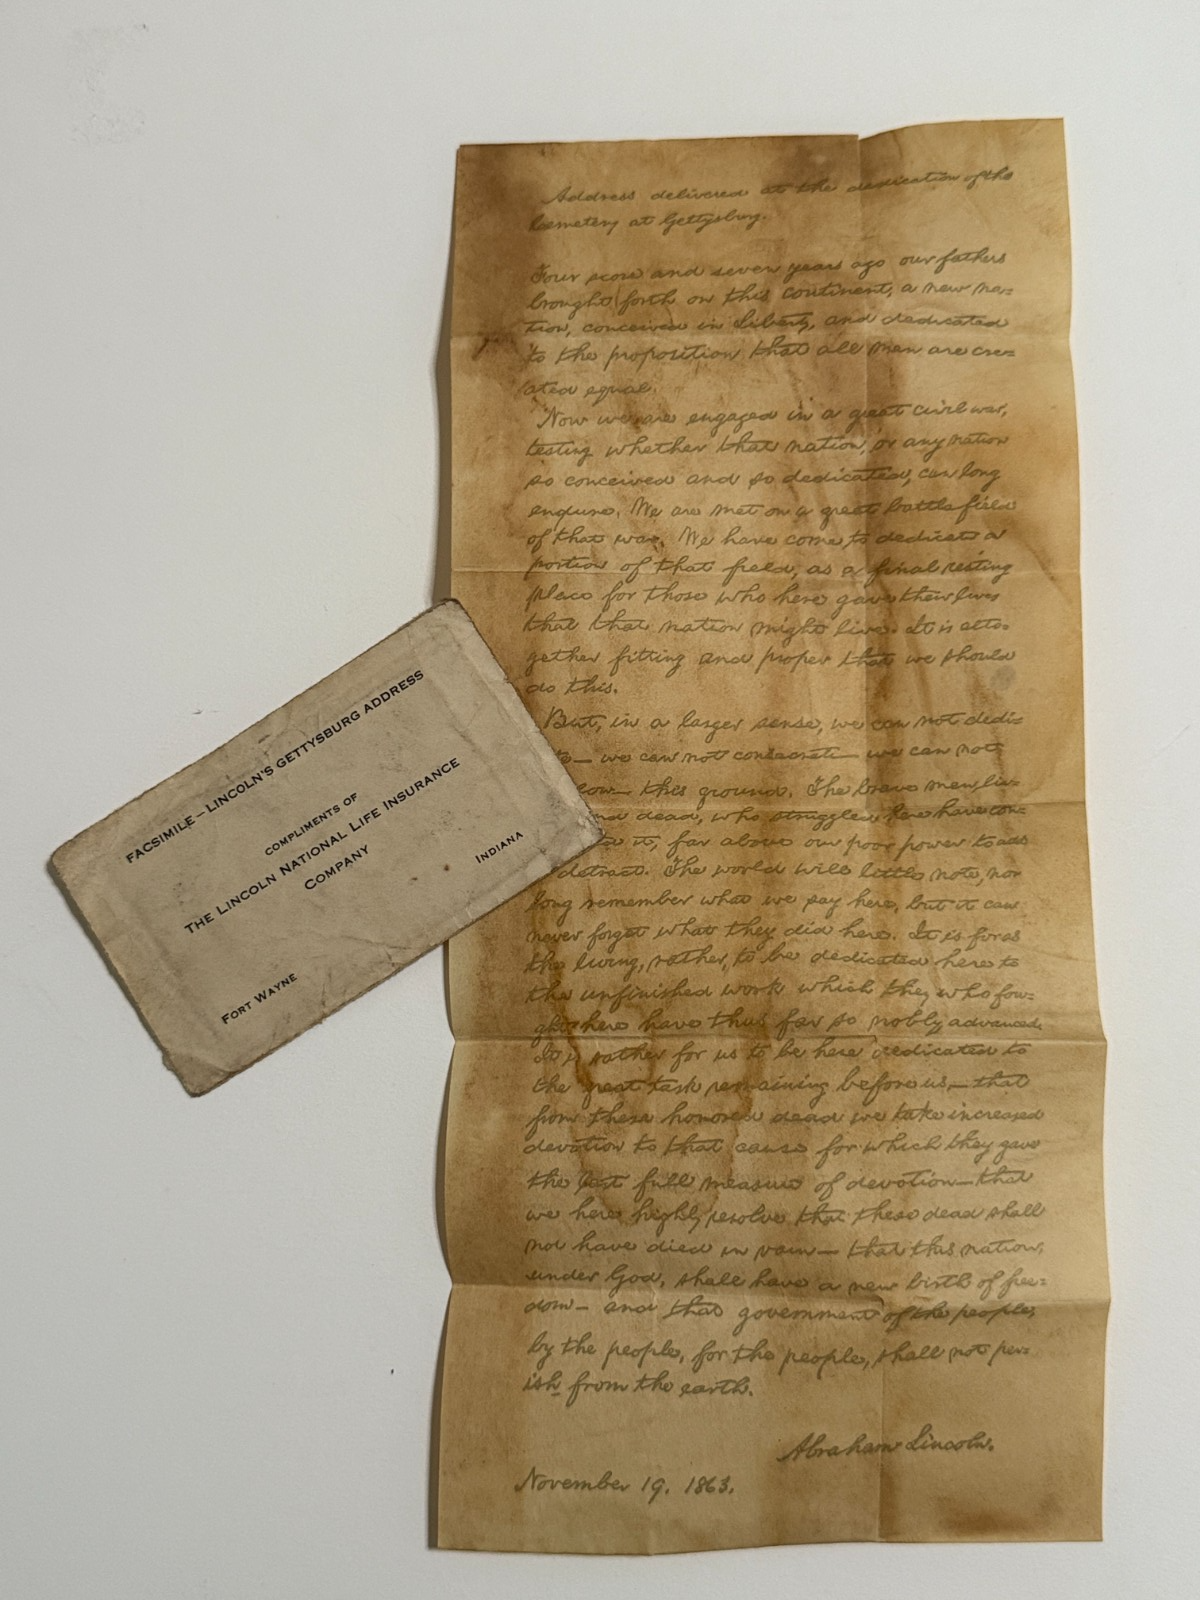 Address delivered at the dedication of the
Cemetery at Gettysburg.
Four score and seven years ago our fathers
brought forth on this continent, a new na=
tion, conceived in Liberty, and dedicated
to the proposition that all men are cre=
ated equal.
Now we are engaged in a great civil war,
testing whether that nation, or any nation
so conceived and so dedicated, can long
endure. We are met on a great battle field
of that war. We have come to dedicate a
portion of that field, as a final resting
place for those who here gave their lives
that that nation might live. It is alto=
gether fitting and proper that we should
do this.
But, in a larger sense, we can not dedi=
— we can not consecrate — we can not
— this ground. The brave men, liv=
dead, who struggled here have con=
it, far above our poor power to add
detract. The world will little note, nor
long remember what we say here, but it can
never forget what they did here. It is for us
the living, rather, to be dedicated here to
the unfinished work which they who fou=
ght here have thus far so nobly advanced.
It is rather for us to be here dedicated to
the great task remaining before us — that
from these honored dead we take increased
devotion to that cause for which they gave
the last full measure of devotion — that
we here highly resolve that these dead shall
not have died in vain — that this nation,
under God, shall have a new birth of free=
dom — and that government of the people,
by the people, for the people, shall not per=
ish from the earth.
Abraham Lincoln.
November 19, 1863.
FACSIMILE — LINCOLN'S GETTYSBURG ADDRESS
COMPLIMENTS OF
THE LINCOLN NATIONAL LIFE INSURANCE
COMPANY
FORT WAYNE INDIANA